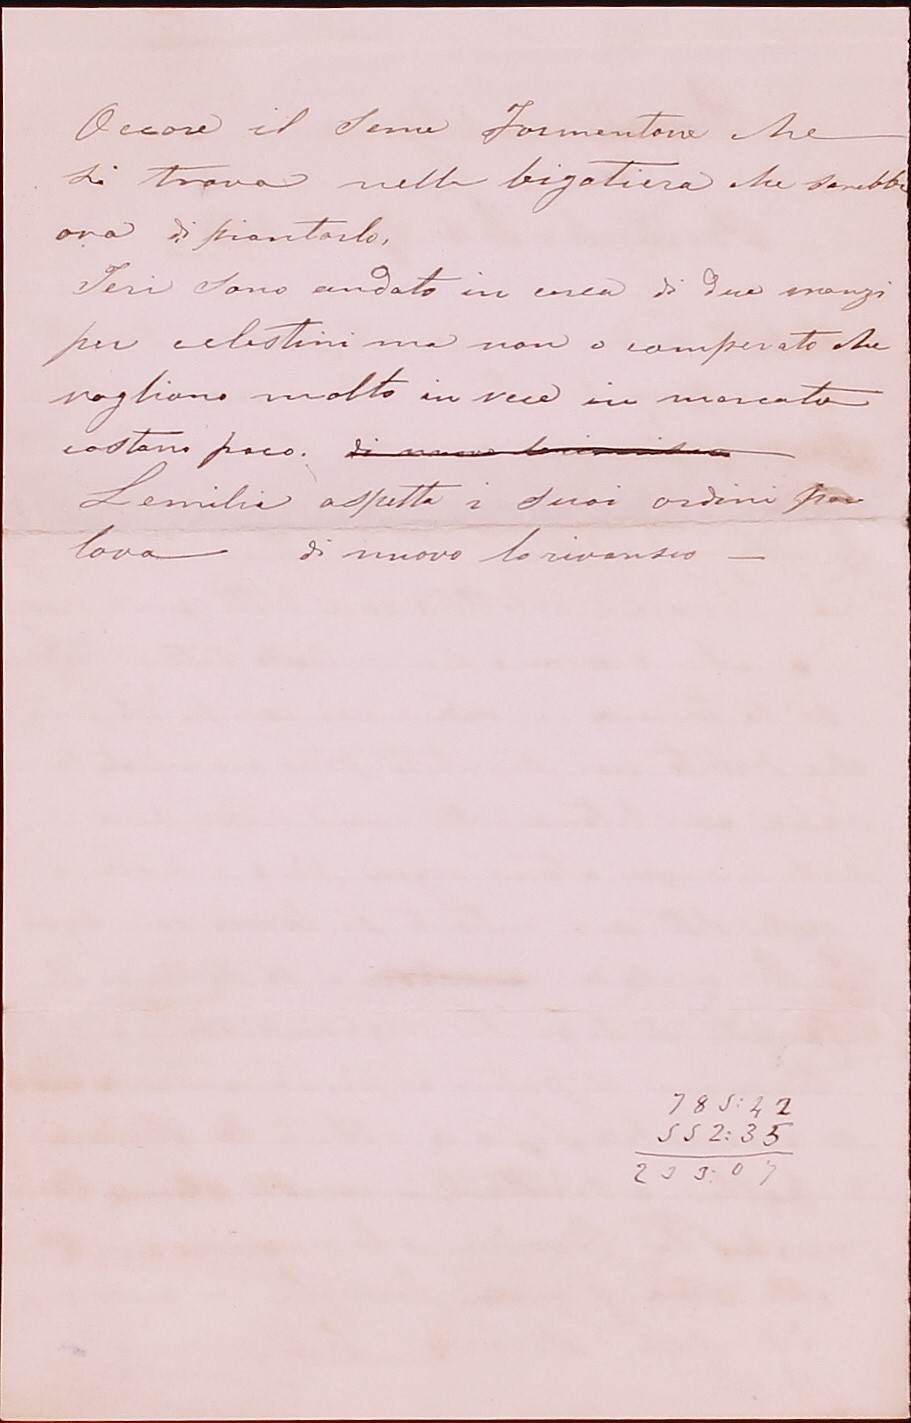 Occore il seme Formentone che
si trova nella bigatiera che sarebbe
ora di piantarlo,
Ieri sono andato in cerca di due manzi
per celestini ma non o comperato che
vogliono molto in vece in mercato
costano poco. di nuovo lo riverisco
Lemilia aspetta i suoi ordini par
lava di nuovo lo riverisco —
785:42
552:35
233:07